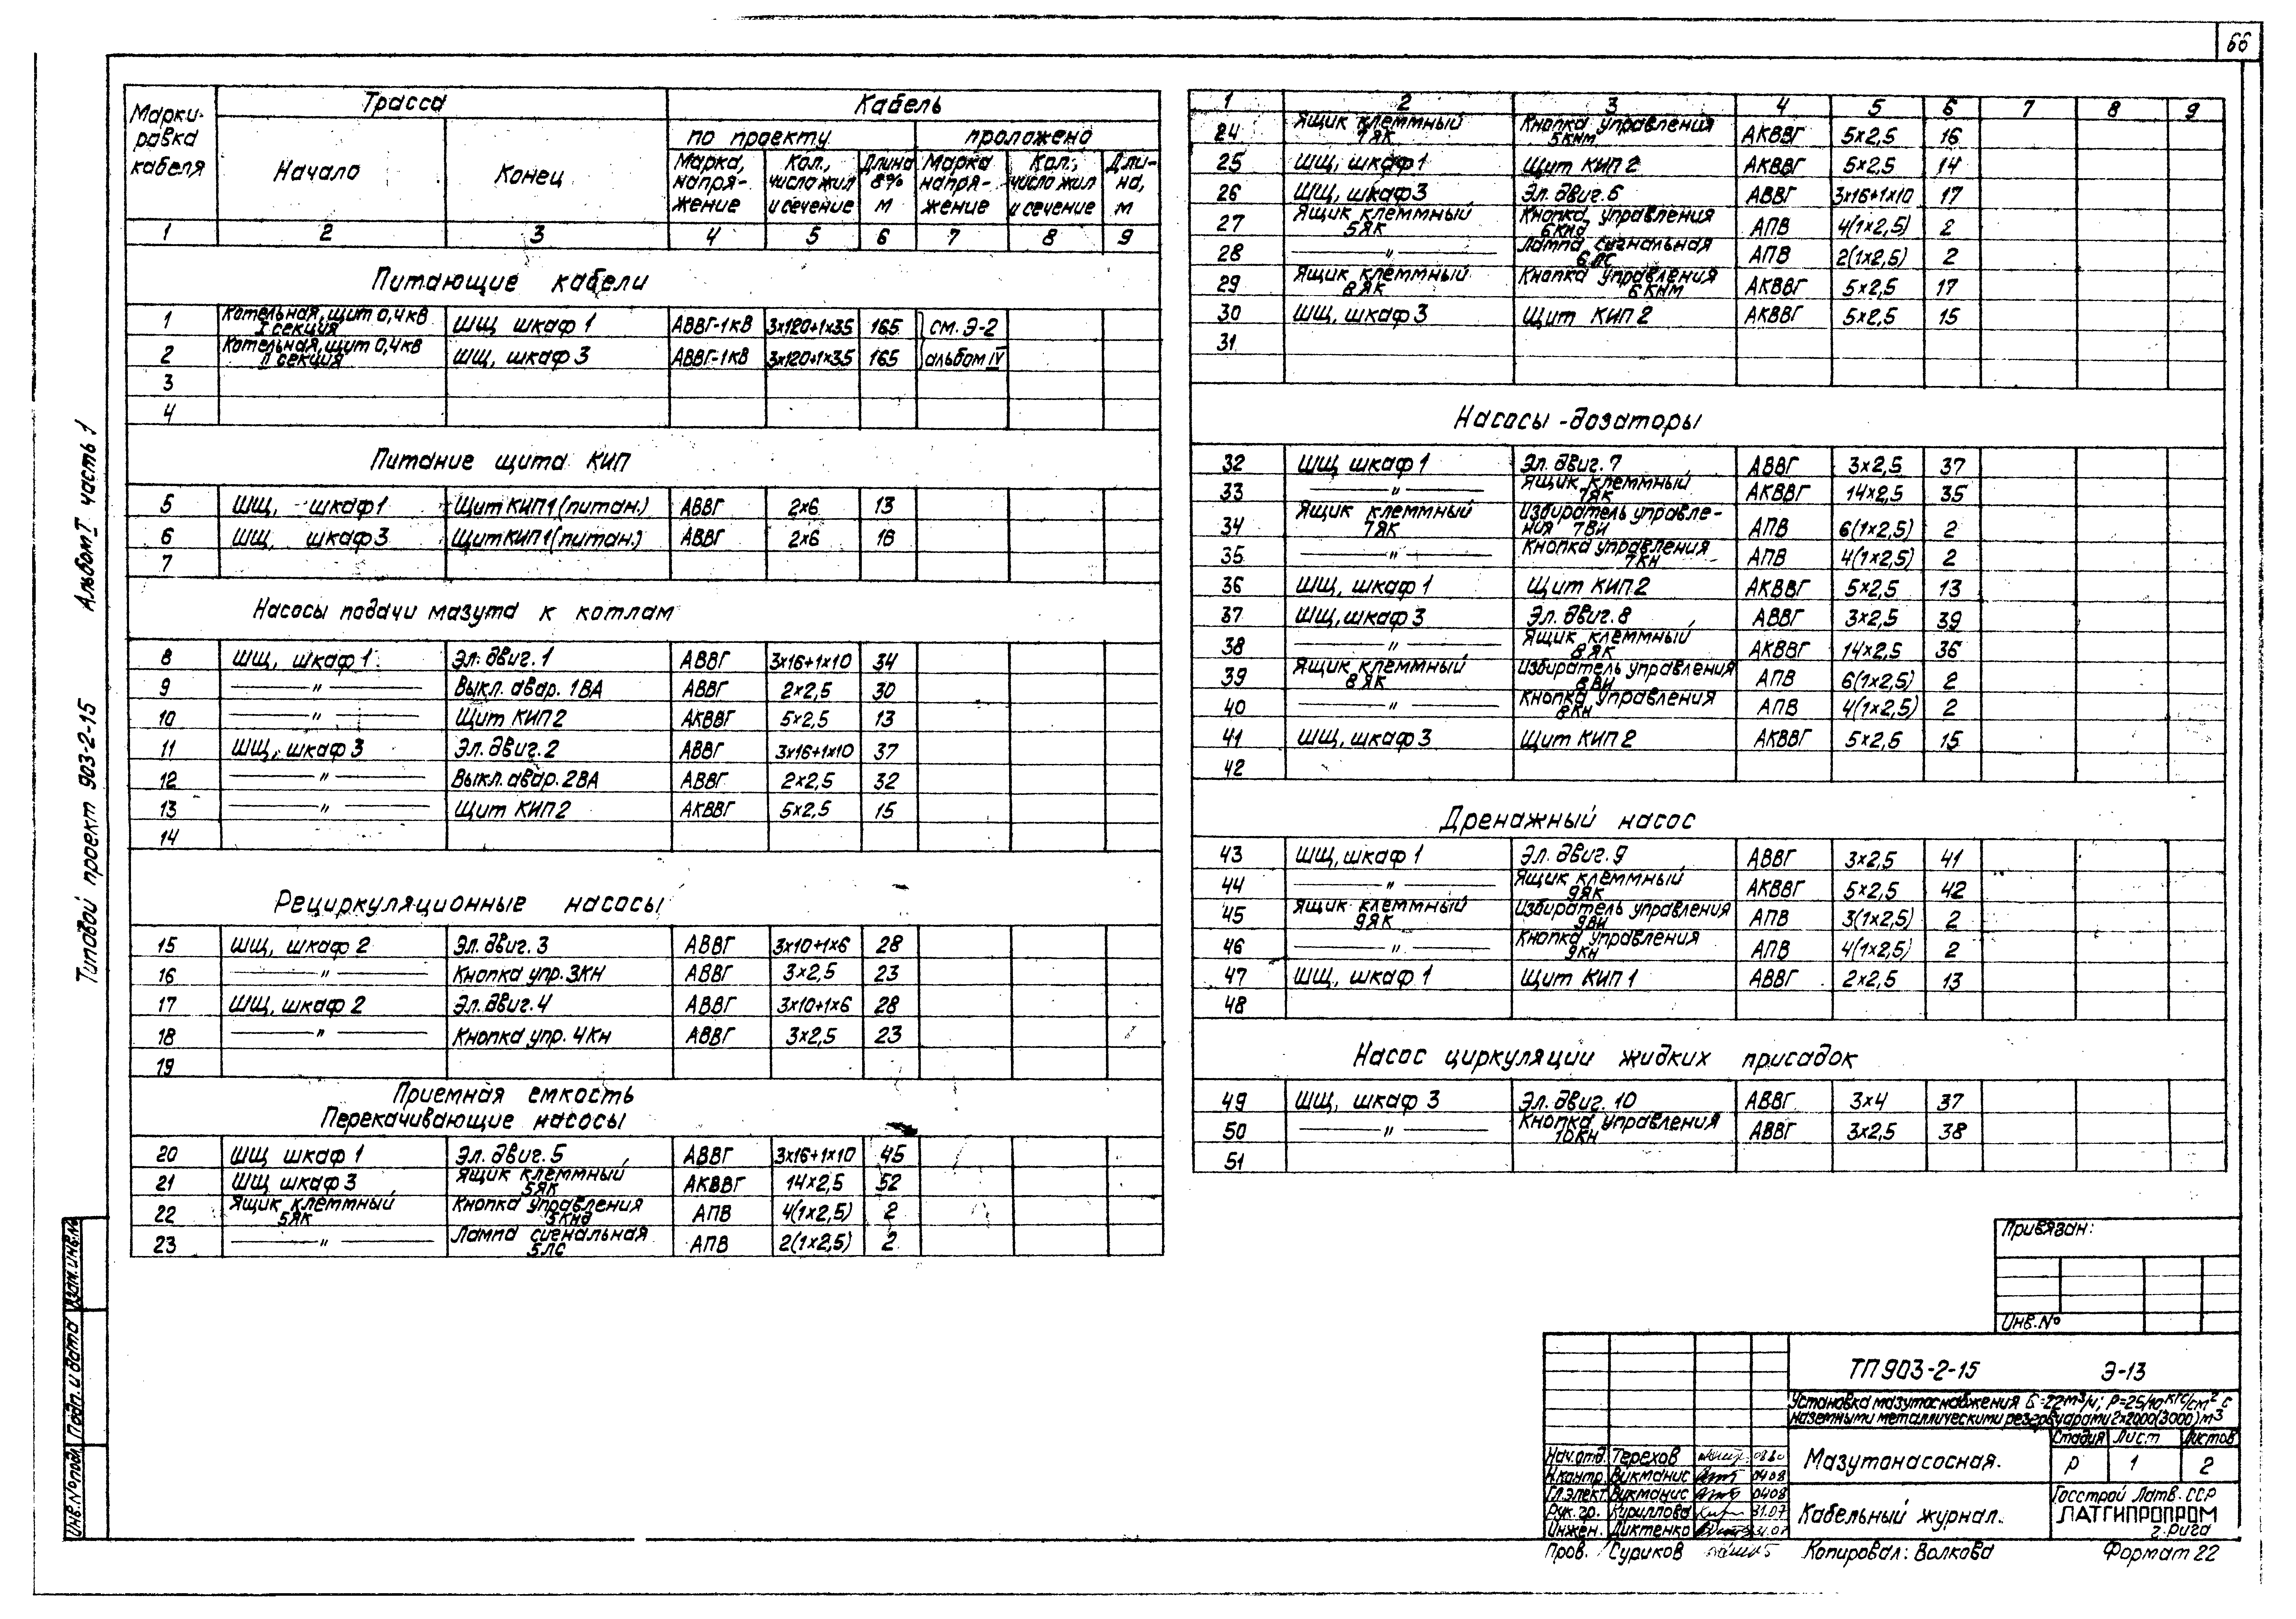 66
Типовой проект 903-2-15 Альбом I часть 1
Марки-ровка кабеля | Трасса | Кабель
по проекту | проложено
Начало | Конец | Марка, напря-жение | Кол., число жил и сечение | Длина 8% м | Марка напря-жение | Кол., число жил и сечение | Дли-на, м
1 2 3 4 5 6 7 8 9
Питающие кабели
1 Котельная, щит 0,4кв I секция ШЩ шкаф 1 АВВГ-1кв 3х120+1х35 165 см. Э-2
2 Котельная, щит 0,4кв II секция ШЩ, шкаф 3 АВВГ-1кв 3х120+1х35 165 альбом IV
3
4
Питание щита КИП
5 ШЩ, шкаф 1 Щит КИП1 (питан.) АВВГ 2х6 13
6 ШЩ, шкаф 3 Щит КИП1 (питан.) АВВГ 2х6 16
7
Насосы подачи мазута к котлам
8 ШЩ, шкаф 1 Эл. двиг. 1 АВВГ 3х16+1х10 34
9 —"— Выкл. авар. 1ВА АВВГ 2х2,5 30
10 —"— Щит КИП2 АКВВГ 5х2,5 13
11 ШЩ, шкаф 3 Эл. двиг. 2 АВВГ 3х16+1х10 37
12 —"— Выкл. авар. 2ВА АВВГ 2х2,5 32
13 —"— Щит КИП2 АКВВГ 5х2,5 15
14
Рециркуляционные насосы
15 ШЩ, шкаф 2 Эл. двиг. 3 АВВГ 3х10+1х6 28
16 —"— Кнопка упр. 3КН АВВГ 3х2,5 23
17 ШЩ, шкаф 2 Эл. двиг. 4 АВВГ 3х10+1х6 28
18 —"— Кнопка упр. 4Кн АВВГ 3х2,5 23
19
Приемная емкость
Перекачивающие насосы
20 ШЩ шкаф 1 Эл. двиг. 5 АВВГ 3х16+1х10 45
21 ШЩ шкаф 3 Ящик клеммный 5ЯК АКВВГ 14х2,5 52
22 Ящик клеммный 5ЯК Кнопка управления 5кнд АПВ 4(1х2,5) 2
23 —"— Лампа сигнальная 5ЛС АПВ 2(1х2,5) 2
1 2 3 4 5 6 7 8 9
24 Ящик клеммный 7ЯК Кнопка управления 5кнм АКВВГ 5х2,5 16
25 ШЩ, шкаф 1 Щит КИП 2 АКВВГ 5х2,5 14
26 ШЩ, шкаф 3 Эл. двиг. 6 АВВГ 3х16+1х10 17
27 Ящик клеммный 5ЯК Кнопка управления 6кнд АПВ 4(1х2,5) 2
28 —"— Лампа сигнальная 6ЛС АПВ 2(1х2,5) 2
29 Ящик клеммный 8ЯК Кнопка управления 6КНМ АКВВГ 5х2,5 17
30 ШЩ, шкаф 3 Щит КИП 2 АКВВГ 5х2,5 15
31
Насосы-дозаторы
32 ШЩ шкаф 1 Эл. двиг. 7 АВВГ 3х2,5 37
33 —"— Ящик клеммный 7ЯК АКВВГ 14х2,5 35
34 Ящик клеммный 7ЯК Избиратель управле-ния 7ВИ АПВ 6(1х2,5) 2
35 —"— Кнопка управления 7кн АПВ 4(1х2,5) 2
36 ШЩ, шкаф 1 Щит КИП2 АКВВГ 5х2,5 13
37 ШЩ, шкаф 3 Эл. двиг. 8 АВВГ 3х2,5 39
38 —"— Ящик клеммный 8ЯК АКВВГ 14х2,5 36
39 Ящик клеммный 8ЯК Избиратель управления 8ВИ АПВ 6(1х2,5) 2
40 —"— Кнопка управления 8кн АПВ 4(1х2,5) 2
41 ШЩ, шкаф 3 Щит КИП 2 АКВВГ 5х2,5 15
42
Дренажный насос
43 ШЩ, шкаф 1 Эл. двиг. 9 АВВГ 3х2,5 41
44 —"— Ящик клеммный 9ЯК АКВВГ 5х2,5 42
45 Ящик клеммный 9ЯК Избиратель управления 9ВИ АПВ 3(1х2,5) 2
46 —"— Кнопка управления 9кн АПВ 4(1х2,5) 2
47 ШЩ, шкаф 1 Щит КИП 1 АВВГ 2х2,5 13
48
Насос циркуляции жидких присадок
49 ШЩ, шкаф 3 Эл. двиг. 10 АВВГ 3х4 37
50 —"— Кнопка управления 10кн АВВГ 3х2,5 38
51
Привязан:
Инв.№
ТП 903-2-15 Э-13
Установка мазутоснабжения G=22м3/ч; Р=25/40 кгс/см2 с
наземными металлическими резервуарами 2х2000(3000)м3
Мазутонасосная.
Стадия Лист Листов
Р 1 2
Кабельный журнал.
Госстрой Латв. ССР
ЛАТГИПРОПРОМ
г. Рига
Нач.отд. Терехов
Н.контр. Викманис 0408
Гл.элект. Викманис 0408
Рук.гр. Кириллова 31.07
Инжен. Диктенко 31.07
Пров. Суриков
Копировал: Волкова Формат 22
Взам.инв.№
Подп. и дата
Инв.№ подл.